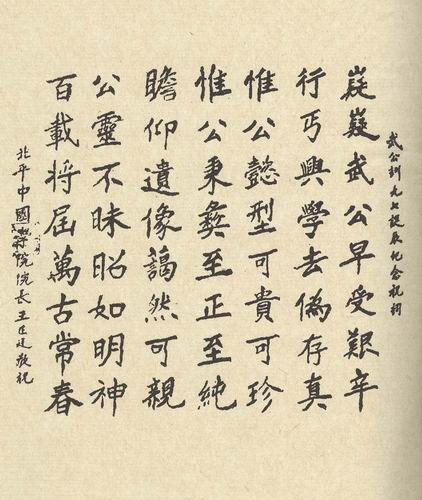 武公訓九七誕辰紀念祝詞
嶷嶷武公早受艱辛
行丐興學去偽存真
惟公懿型可貴可珍
惟公秉彝至正至純
瞻仰遺像藹然可親
公靈不昧昭如明神
百載將屆萬古常春
北平中國學院院長王正廷敬祝